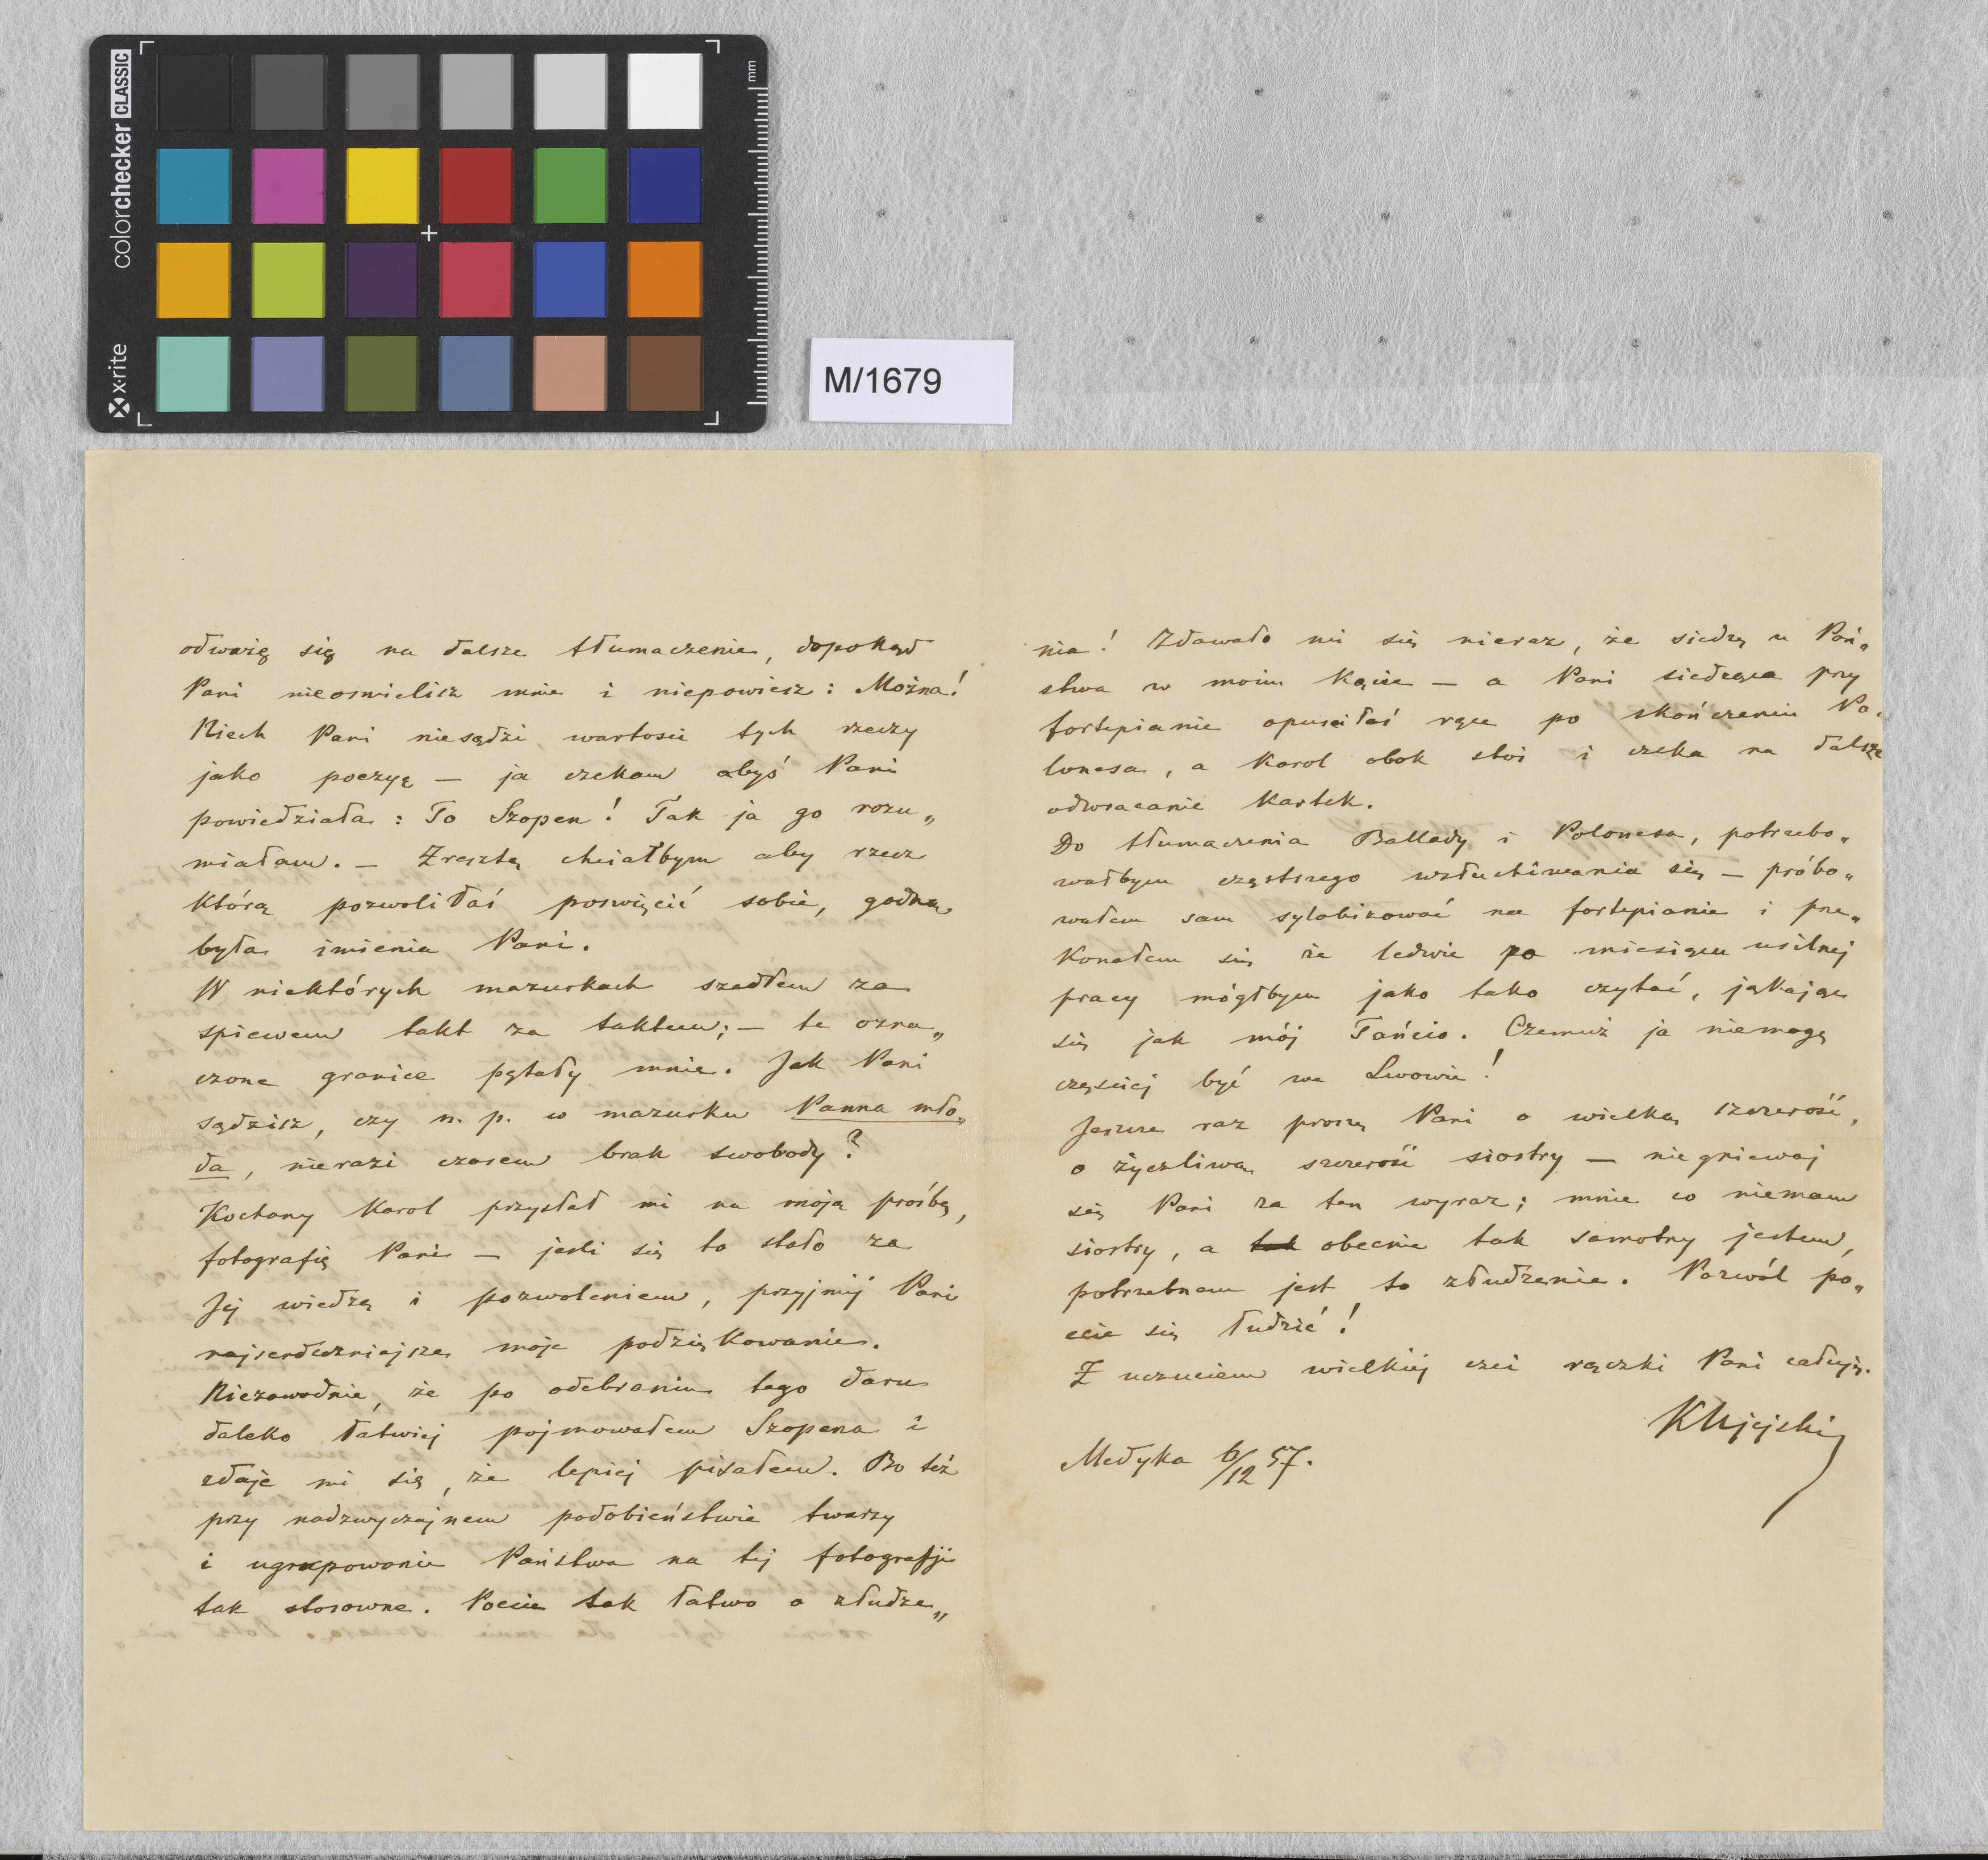 colorchecker CLASSIC
x-rite
mm
M/1679
odważę się na dalsze tłumaczenie, dopokąd
Pani nieosmielisz mnie i niepowiesz: Można!
Niech Pani niesądzi wartości tych rzeczy
jako poezyę — ja czekam abyś Pani
powiedziała: To Szopen! Tak ja go rozu„
miałam. — Zresztą chciałbym aby rzecz
którą pozwoliłaś poswięcić sobie, godna
była imienia Pani.
W niektórych mazurkach szedłem za
spiewem takt za taktem; — te ozna„
czone granice pętały mnie. Jak Pani
sądzisz, czy n. p. w mazurku Panna mło„
da, nierazi czasem brak swobody?
Kochany Karol przysłał mi na moją prośbę,
fotografię Pani — jeśli się to stało za
Jej wiedzą i pozwoleniem, przyjmij Pani
najserdeczniejsze moje podziękowanie.
Niezawodnie, że po odebraniu tego daru
daleko łatwiej pojmowałem Szopena i
zdaje mi się, że lepiej pisałem. Bo też
przy nadzwyczajnem podobieństwie twarzy
i ugrupowanie Państwa na tej fotografji
tak stosowne. Poecie tak łatwo o złudze„
nia! Zdawało mi się nieraz, że siedzę u Pań„
stwa w moim kącie — a Pani siedząca przy
fortepianie opuściłaś ręce po skończeniu Po„
lonesa, a Karol obok stoi i czeka na dalsze
odwracanie kartek.
Do tłumaczenia Ballady i Polonesa, potrzebo„
wałbym częstszego wsłuchiwania się — próbo„
wałem sam sylabizować na fortepianie i prze„
konałem się że ledwie po miesiącu usilnej
pracy mógłbym jako tako czytać, jąkając
się jak mój Tańcio. Czemuż ja niemogę
częściej być we Lwowie!
Jeszcze raz proszę Pani o wielką szczerość,
o życzliwą szczerość siostry — niegniewaj
się Pani za ten wyraz; mnie co niemam
siostry, a tak obecnie tak samotny jestem,
potrzebnem jest to złudzenie. Pozwól po„
ecie się łudzić!
Z uczuciem wielkiej czci rączki Pani całuję.
KUjejski
Medyka 6/12 57.